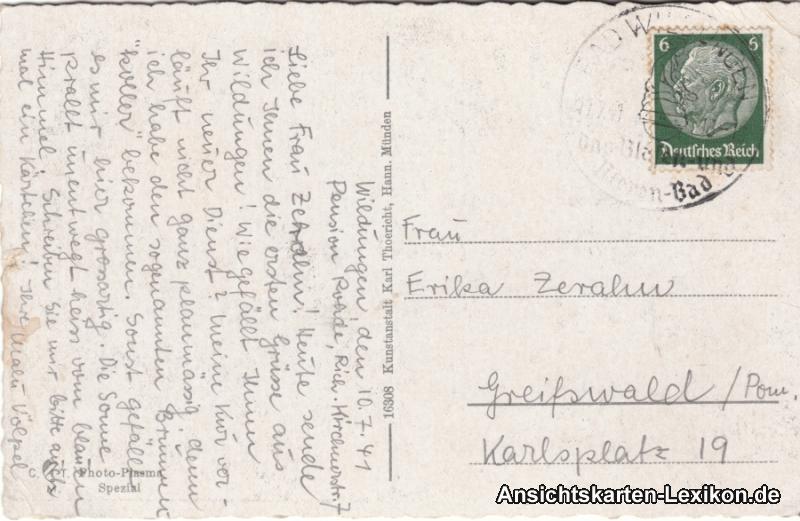 Wildungen, den 10.7.41
Pension Rohde, Rich. Kirchnerstr. 7
Liebe Frau Zerahn! Heute sende
ich Ihnen die ersten Grüße aus
Wildungen! Wie gefällt Ihnen
Ihr neuer Dienst? Meine Kur ver-
läuft nicht ganz planmässig, denn
ich habe den sognannten Brunnen
"koller" bekommen. Sonst gefällt
es mir hier grossartig. Die Sonne
prallt unentwegt heiss vom blauen
Himmel. Schreiben Sie mir bitte auch
mal ein Kärtchen! Ihre Völpel
C. Photo-Plasma
Spezial
16308 Kunstanstalt Karl Thoericht, Hann. Münden
BAD WILDUNGEN
Nieren-Bad
6 6
Deutsches Reich
Frau
Erika Zerahn
Greifswald / Pom.
Karlsplatz 19
Ansichtskarten-Lexikon.de